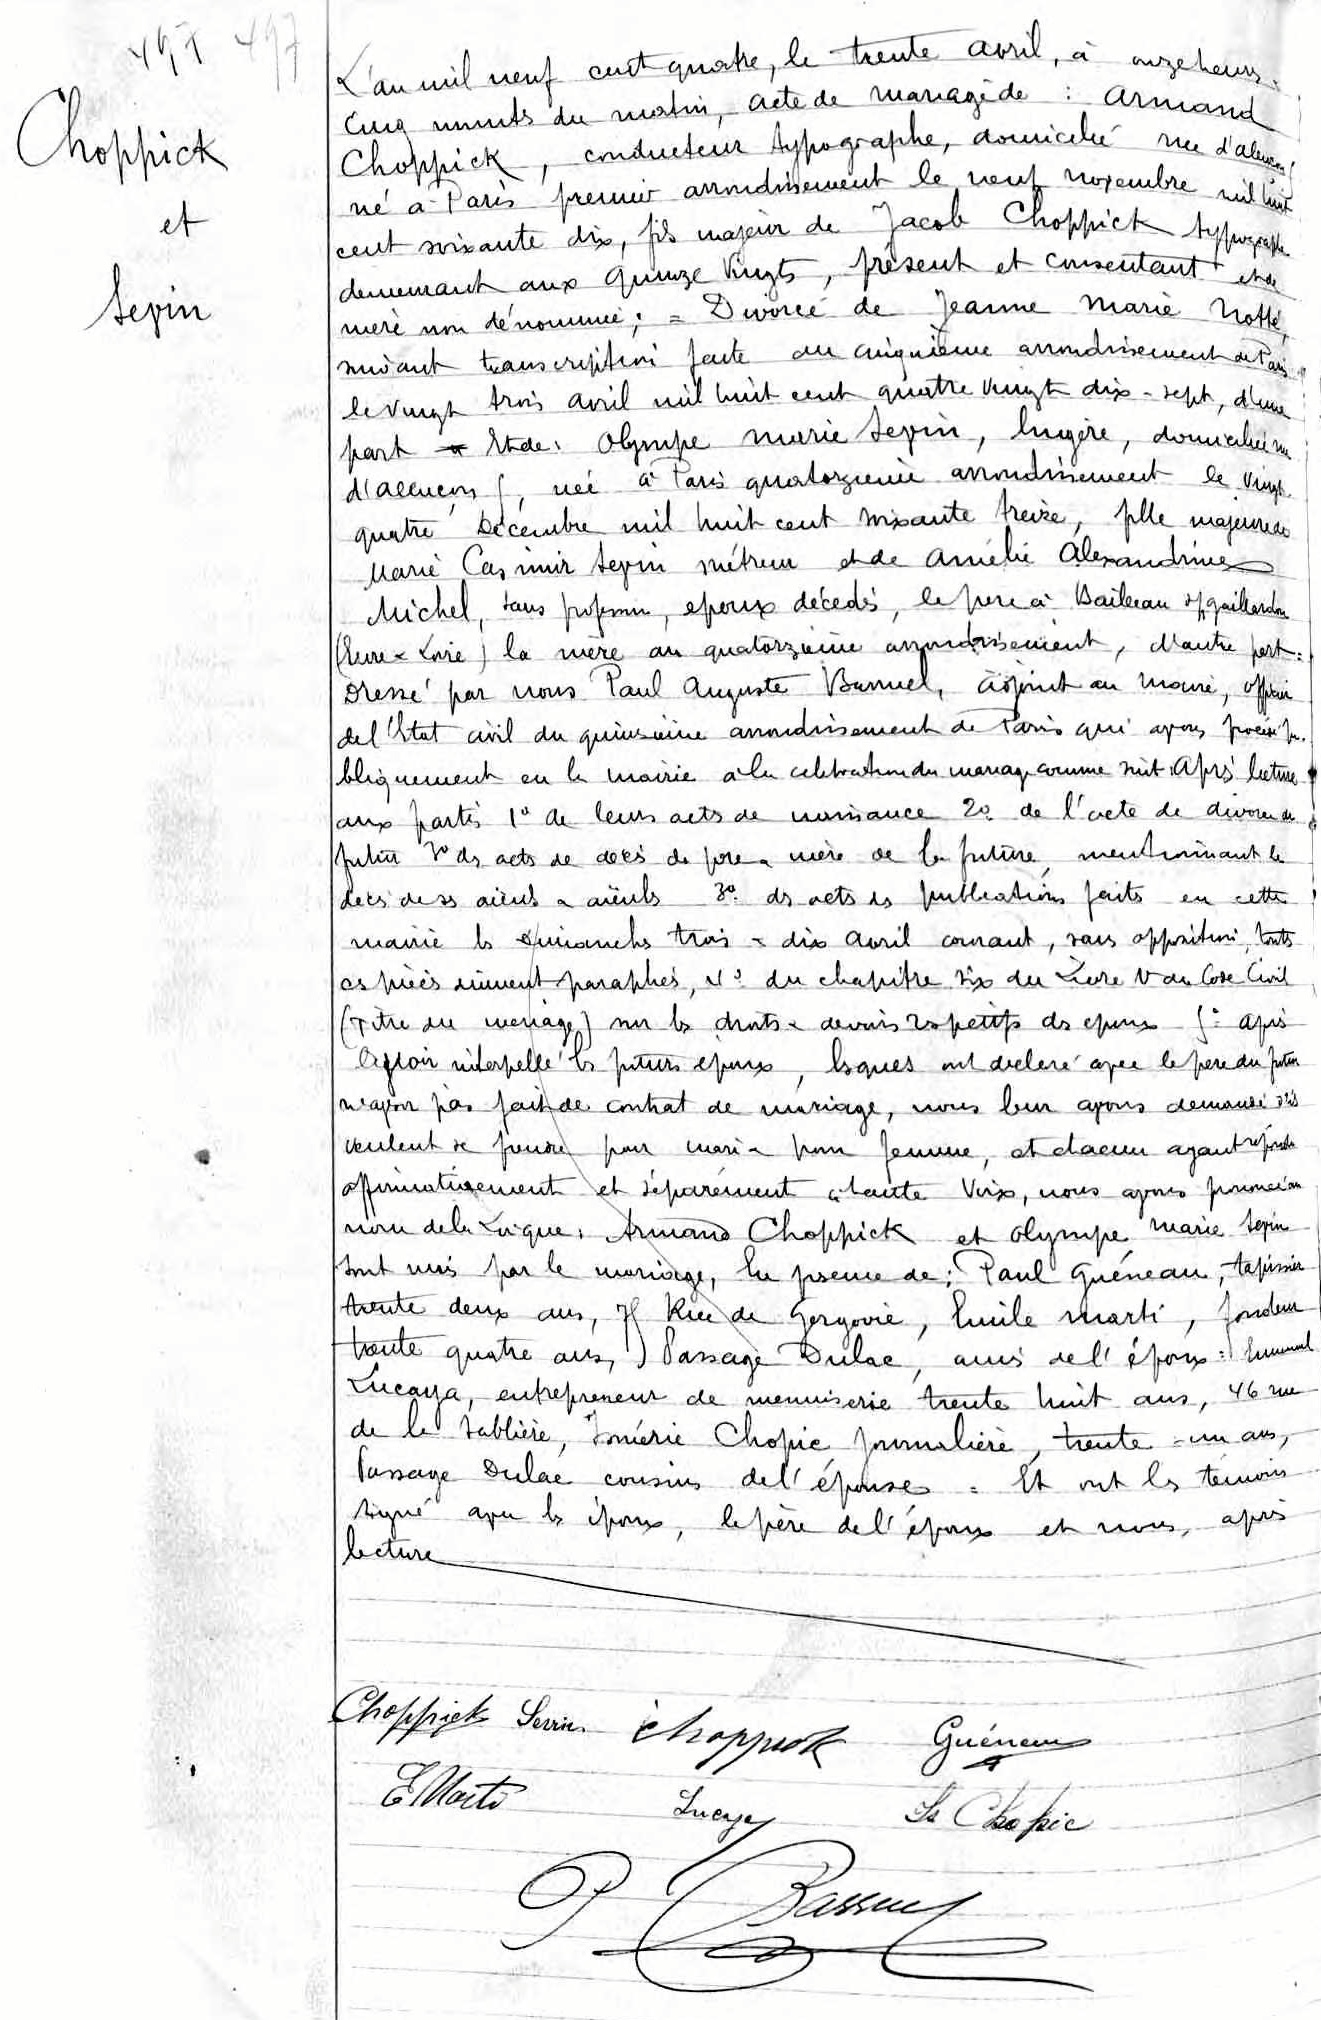 497 497
Choppick
et
Sevin
L'an mil neuf cent quatre, le trente avril, à onze heures
cinq minutes du matin, acte de mariage de : Armand
Choppick, conducteur typographe, domicilié rue d'alençon 5
né à Paris premier arrondissement le neuf novembre mil huit
cent soixante dix, fils majeur de Jacob Choppick typographe
demeurant aux Quinze Vingts, présent et consentant et de
mère non dénommée ; = Divorcé de Jeanne Marie Notté,
suivant transcription faite au cinquième arrondissement de Paris
le vingt trois avril mil huit cent quatre vingt dix-sept, d'une
part Et de : Olympe Marie Sevin, lingère, domiciliée rue
d'alençon 5, née à Paris quatorzième arrondissement le vingt
quatre Décembre mil huit cent soixante treize, fille majeure de
Marie Casimir Sevin métreur et de Amélie Alexandrine
Michel, sans profession, époux décédés, le père à Bailleau s/s gaillardon
(Eure & Loire) la mère au quatorzième arrondissement, d'autre part =
Dressé par nous Paul Auguste adjoint au maire, officier
de l'Etat civil du quinzième arrondissement de Paris qui avons procédé pu-
bliquement en la mairie à la célébration du mariage comme suit. Après lecture
aux parties 1° de leurs actes de naissance 2° de l'acte de divorce du
futur des actes de décès de père & mère de la future, mentionnant le
décès de ses aïeuls & aïeules 3° des actes de publications faites en cette
mairie les dimanches trois & dix avril courant, sans opposition, toutes
ces pièces dûment paraphées, 4° du chapitre six du Livre V du Code Civil
(Titre du mariage) sur les droits & devoirs respectifs des époux 5° Après
avoir interpellé les futurs époux, lesquels ont déclaré avec le père du futur
n'avoir pas fait de contrat de mariage, nous leur avons demandé s'ils
veulent se prendre pour mari & pour femme, et chacun ayant répondu
affirmativement et séparément à haute voix, nous avons prononcé au
nom de la Loi que : Armand Choppick et Olympe Marie Sevin
sont unis par le mariage, En présence de : Paul Guéneau, tapissier
trente deux ans, Rue de Gergovie, Emile Marti, fondeur
trente quatre ans, Passage Dulac, amis de l'époux = Emmanuel
Lucaya, entrepreneur de menuiserie trente huit ans, 46 rue
de la Sablière, Ismérie Chopic journalière, trente-un ans,
Passage Dulac cousins de l'épouse = Et ont les témoins
signé avec les époux, le père de l'époux et nous, après
lecture
Choppick Sevin Choppick Guéneau
E Marti Lucaya Is Chopic
P